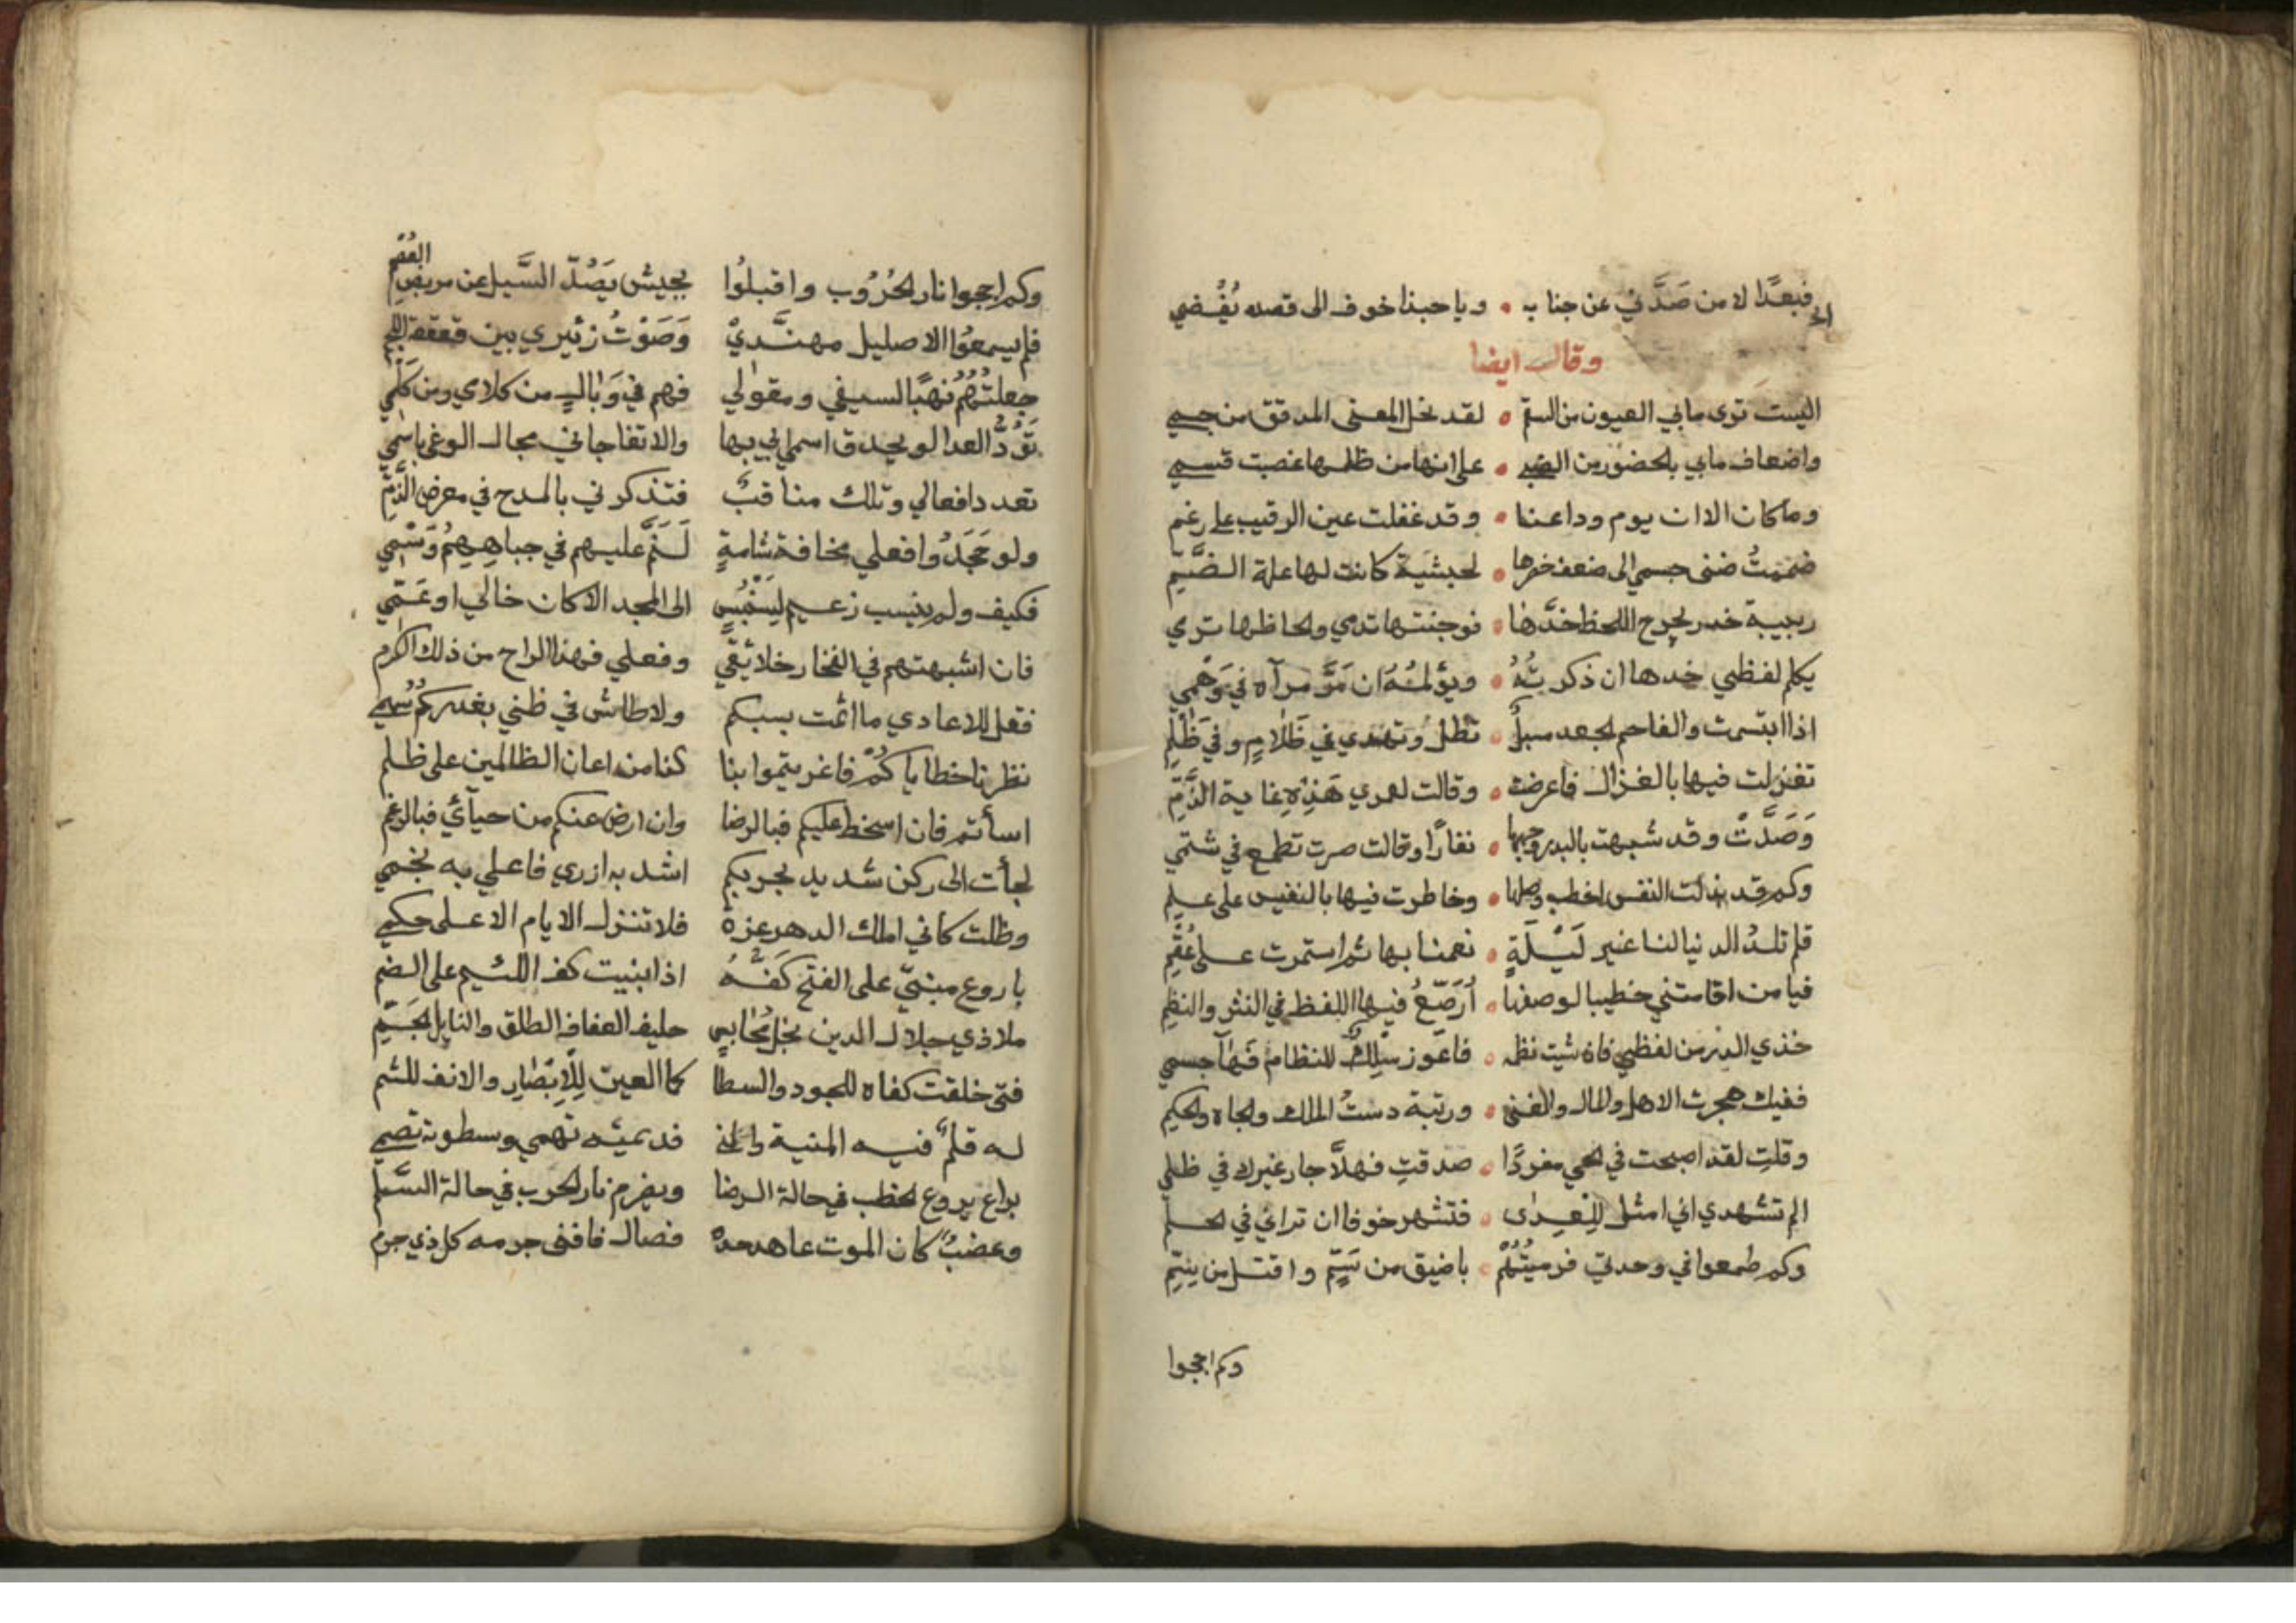 فبعدًا لا من صَدَّني عن جنابه • ويا حبذا خوف الى قصده يُفْضي
وقال ايضا
اليست ترى ما بي العيون من السقم • لقد نحل المعنى المدقق من جسمي
واضعاف ما بي بالحضور من الضنى • على انها من ظلمها غصبت قسمي
وما كان الا ان يوم وداعنا • وقد غفلت عين الرقيب على رغم
ضممتُ ضنى جسمي الى ضعف خصرها • لجنسية كانت لها علة الضَّمِّ
ربيبة خدر يجرح اللحظ خدَّها • فوجنتها تدمي ولحاظها ترمي
يكلم لفظي خدها ان ذكرتُهُ • ويؤلمُهُ ان مَرَّ مرآه في وَهْمي
اذا ابتسمت والفاحم الجعد مسبلٌ • تُظلُّ وتهدي في ظَلامٍ وفي ظَلْمِ
تغزلت فيها بالغزال فاعرضت • وقالت لعمري هَذِهِ غاية الذَّمِّ
وَصَدَّتْ وقد شبهت بالبدر وجهها • نفارًا وقالت صرت تطمع في شتمي
وكم قد بذلت النفس اخطب وصلها • وخاطرت فيها بالنفيس على علم
فلم تلدُ الدنيا لنا غير لَيْلَةٍ • نعمنا بها ثم استمرت على عُقْمِ
فيا من اقامتني خطيبا لوصفها • اُرَصّعُ فيها اللفظ في النثر والنظم
خذي الدر من لفظي فان شئت نظمه • فاعوز سِلكٌ للنظام فَهَا جسمي
ففيك هجرت الاهل والمال والغنى • ورتبة دستُ الملك والجاه والحكم
وقلتِ لقد اصبحت في الحي مفردًا • صدقتِ فهلَّا جار غيرك في ظلمي
الم تشهدي اني امثل لِلْعِدَى • فتسهر خوفا ان تراني في الحلم
وكم طمعوا في وحدتي فرميتُهُمْ • باضيق من سَمٍّ واقتل من سم
وكم اججوا
وكم اججوا نار الحُرُوب واقبلُوا بجيش يَصُدّ السَّيل عن مربض العُصْم
فلم يسمعُوا الا صليل مهنَّدِيْ وَصَوْتُ زئيري بين قعقعة اللجم
جعلتُهُمُ نهبًا لسيفي ومقولي فهم في وَبَالٍ من كلامي ومن كَلْمي
تَوَدُّ العدا لو يحدق اسم ابي بها والا تفاجا في مجال الوغى باسمي
تعدد افعالي وتلك مناقبٌ فتذكرني بالمدح في معرض الذَّمِّ
ولو جَحَدُوا فعلي مخافة شامتٍ لَنَمَّ عليهم في جباهِهِمُ وَسْمِي
فكيف ولم ينسب زعيم لِسِنْبِسٍ الى المجد الا كان خالي او عَمِّي
فان اشبهتهم في الفخار خلائقي وفعلي فهذا الراح من ذلك الكرم
فقل للاعادي ما انثت بسبكم ولا طاش في ظني بغدركُمُ سهمي
نظرنا خطاياكُمْ فاغريتموا بنا كذا من اعان الظالمين على ظلم
اسأتم فان اسخط عليكم فبالرضا وان ارض عنكم من حيائي فبالرغم
لجأت الى ركن شديد لحربكم اشد به ازري فاعلي به نجمي
وظلت كاني املك الدهر عزة فلا تنزل الايام الا على حكمي
باروع مبنيّ على الفتح كَفُّهُ اذا بنيت كف اللئيم على الضم
ملاذي جلال الدين نجل محاسن حليف العفاف الطلق والنايل الجَمِّ
فتى خلقت كفاه للجود والسطا كما العين لِلْاِبْصَارِ والانف للشم
له قلمٌ فيه المنية والمنى فديمته تهمي وسطوته تصمي
يراع يروع الخطب في حالة الرضا ويضرم نار الحرب في حالة السَّلم
وعضبٌ كان الموت عاهد حده فصال فافنى جرمه كل ذي جرم